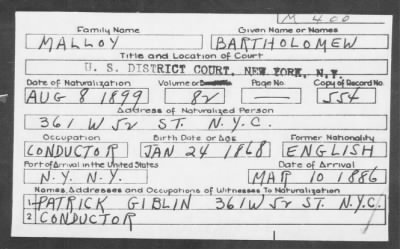 M 400
Family Name Given Name or Names
MALLOY BARTHOLOMEW
Title and Location of Court
U. S. DISTRICT COURT, NEW YORK, N.Y.
Date of Naturalization Volume or Page No. Copy of Record No.
AUG 8 1899 82 — 554
Address of Naturalized Person
361 W 52 ST. N.Y.C.
Occupation Birth Date or Age Former Nationality
CONDUCTOR JAN 24 1868 ENGLISH
Port of Arrival in the United States Date of Arrival
N.Y. N.Y. MAR 10 1886
Names, Addresses and Occupations of Witnesses To Naturalization
1 PATRICK GIBLIN 361 W 52 ST. N.Y.C.
2 CONDUCTOR